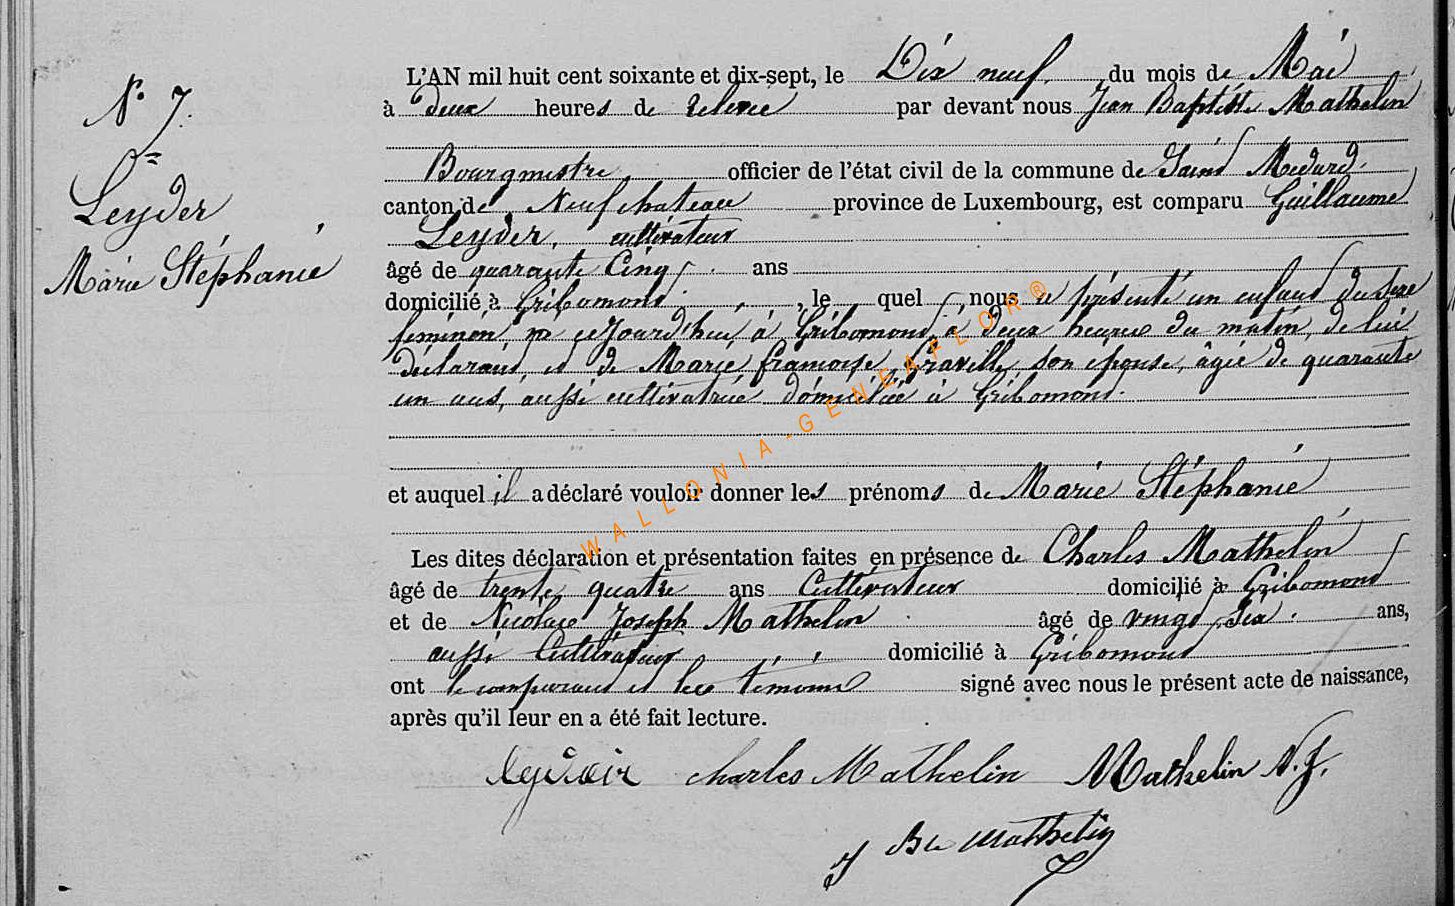 N° 7.
Leyder
Marie Stéphanie
L'AN mil huit cent soixante et dix-sept, le Dix neuf. du mois de Mai
à deux heures de relevée par devant nous Jean Baptiste Mathelin
Bourgmestre officier de l'état civil de la commune de Saint Medard.
canton de Neufchateau province de Luxembourg, est comparu Guillaume
Leyder, cultivateur
âgé de quarante Cinq ans
domicilié à Gribomont , le quel nous a présenté un enfant du sexe
feminin, né cejourd'hui à Gribomont à deux heures du matin, de lui
déclarant et de Marie françoise Graville, son epouse, âgée de quarante
un ans, aussi cultivatrice domiciliée à Gribomont.
et auquel il a déclaré vouloir donner les prénoms de Marie Stéphanie
Les dites déclaration et présentation faites en présence de Charles Mathelin
âgé de trente quatre ans Cultivateur domicilié à Gribomont
et de Nicolas Joseph Mathelin âgé de vingt six . ans,
aussi Cultivateur domicilié à Gribomont
ont le comparant et les témoins signé avec nous le présent acte de naissance,
après qu'il leur en a été fait lecture.
Charles Mathelin Mathelin N. J.
J Bte Mathelin
WALLONIA-GENEAFLOR®